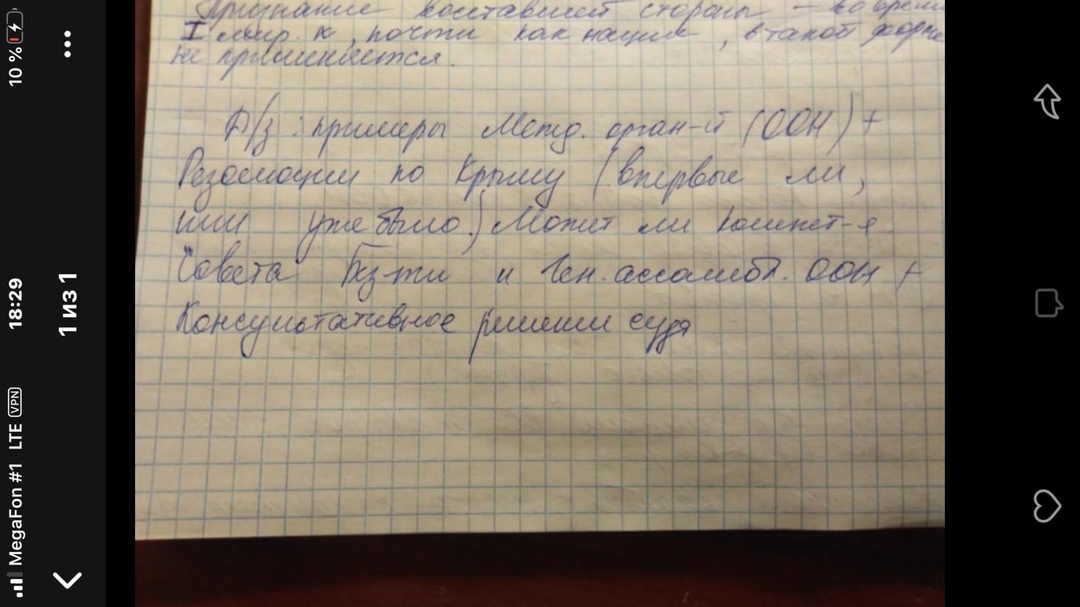 Признание восставшей стороны – во время
I мир. к, почти как нация, в такой форме
не применяется.
Д/з: примеры Межд. орган-й (ООН) +
Резолюции по Крыму (впервые ли,
или уже было) Может ли компет-я
Совета Без-ти и Ген. ассамбл. ООН +
Консультативное решение суда
10 %
18:29
1 из 1
MegaFon #1 LTE VPN